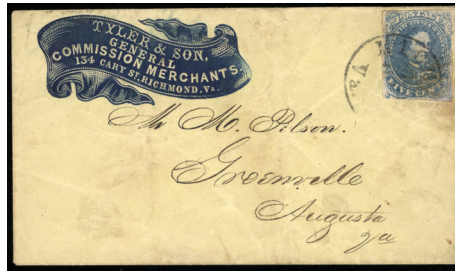 TYLER & SON,
GENERAL
COMMISSION MERCHANTS,
134 CARY ST, RICHMOND, VA.
FIVE CENTS
Mr M. Pilson.
Greenville
Augusta